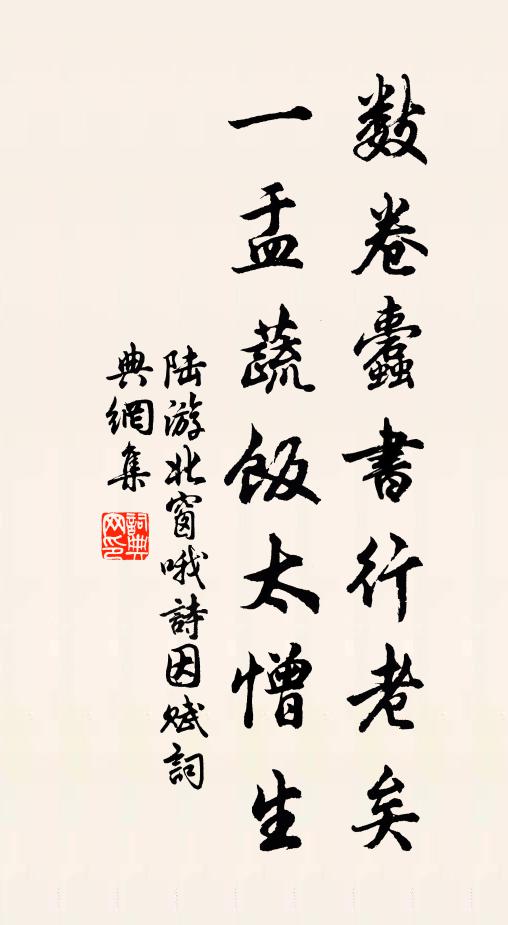 數卷蠹書行老矣
一盂蔬飯太憎生
陆游北窗哦詩因賦詞
典網集
詞典
网印